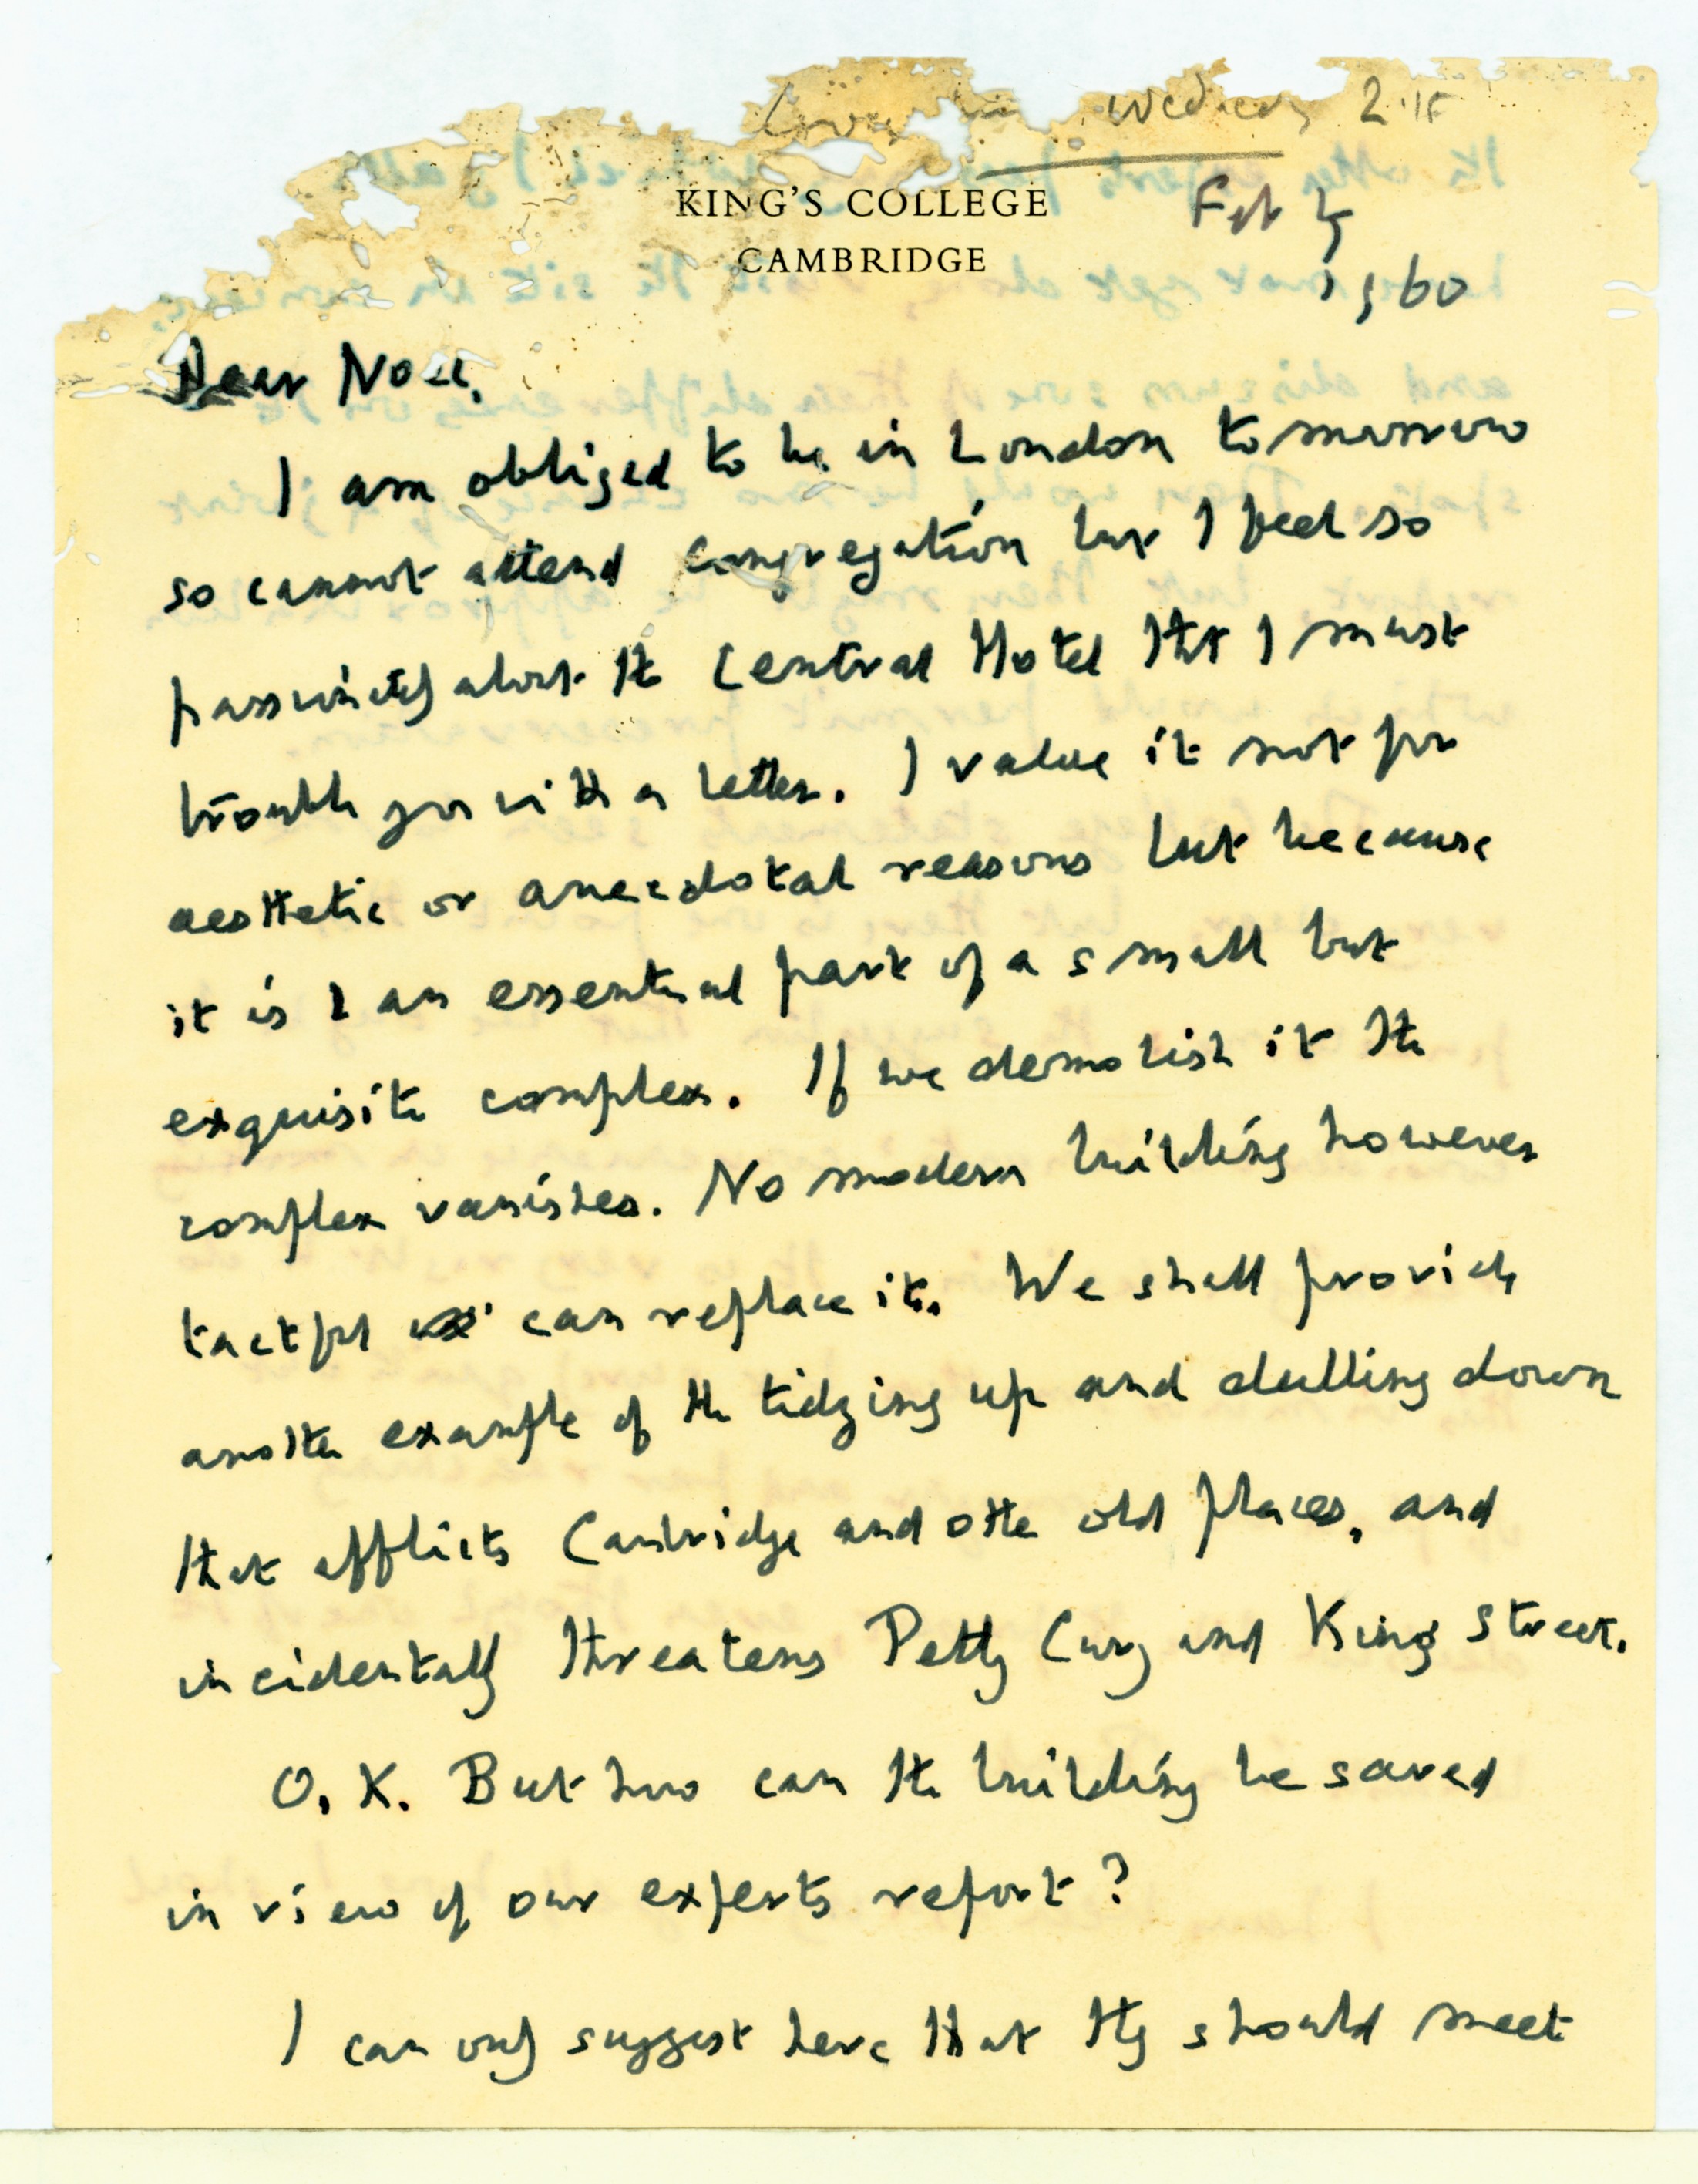 Wednesday 2.15
KING'S COLLEGE
CAMBRIDGE
Feb 5
1960
Dear Noel,
I am obliged to be in London tomorrow
so cannot attend congregation but I feel so
passionately about the Central Hotel that I must
trouble you with a letter. I value it not for
aesthetic or anecdotal reasons but because
it is an essential part of a small but
exquisite complex. If we demolish it the
complex vanishes. No modern building however
tactful can replace it. We shall provide
another example of the tidying up and dulling down
that afflicts Cambridge and other old places, and
incidentally threatens Petty Cury and King Street.
O.K. But how can the building be saved
in view of our experts report?
I can only suggest here that they should meet